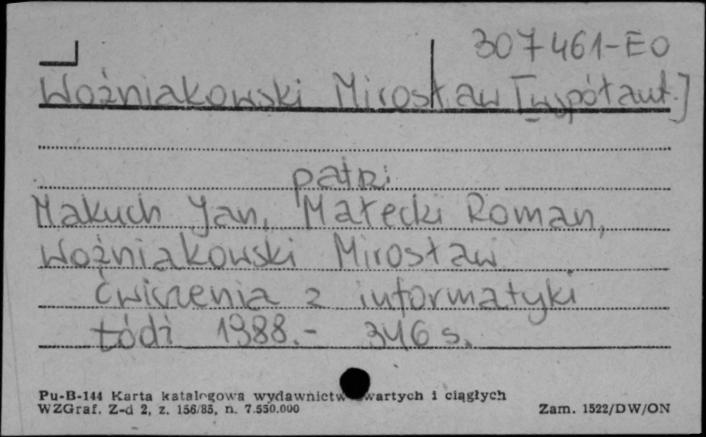 307461-EO
Woźniakowski Mirosław [współaut.]
patrz:
Makuch Jan, Małecki Roman,
Woźniakowski Mirosław
Ćwiczenia z informatyki
Łódź 1988.- 346 s.
Pu-B-144 Karta katalogowa wydawnictw zwartych i ciągłych
WZGraf. Z-d 2, z. 156/85, n. 7.550.000
Zam. 1522/DW/ON